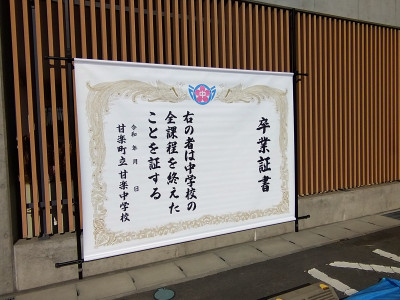 中
卒業証書
右の者は中学校の
全課程を終えた
ことを証する
令和 年 月 日
甘楽町立 甘楽中学校